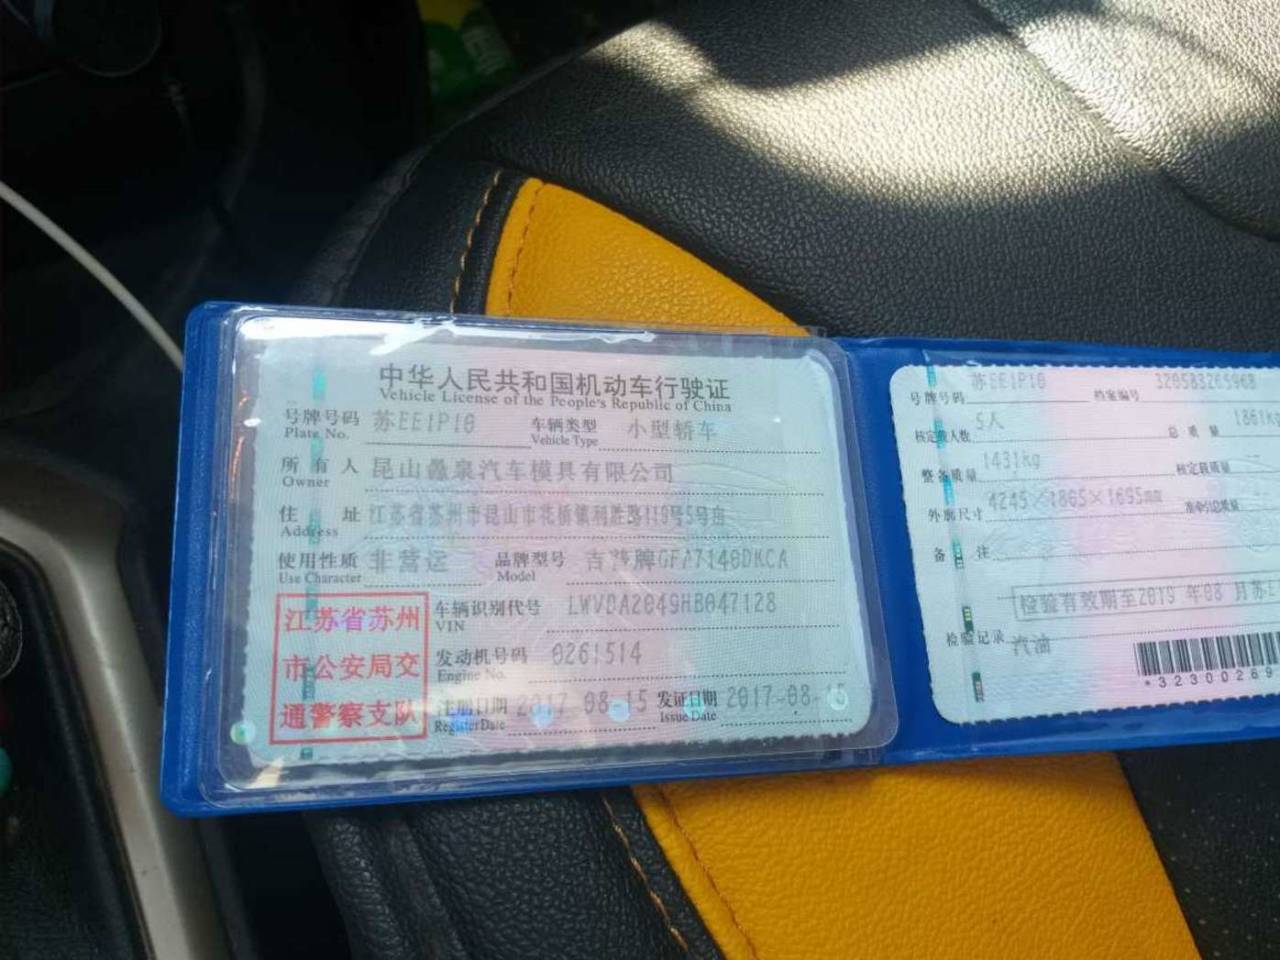 中华人民共和国机动车行驶证
Vehicle License of the People's Republic of China
号牌号码 苏EE1P10 车辆类型 小型轿车
Plate No. Vehicle Type
所有人 昆山鱻泉汽车模具有限公司
Owner
住址 江苏省苏州市昆山市花桥镇利胜路110号5号房
Address
使用性质 非营运 品牌型号 吉普牌GFA7140DKCA
Use Character Model
江苏省苏州
市公安局交
通警察支队
车辆识别代号 LWVDA2049HB047128
VIN
发动机号码 0261514
Engine No.
注册日期 2017-08-15 发证日期 2017-08-15
Register Date Issue Date
号牌号码 苏EE1P10 档案编号 320583265968
核定载人数 5人 总质量 1861kg
整备质量 1431kg 核定载质量
外廓尺寸 4245×1865×1695mm 准牵引总质量
备注
检验有效期至2019年08月苏E
检验记录 汽油
*32300269